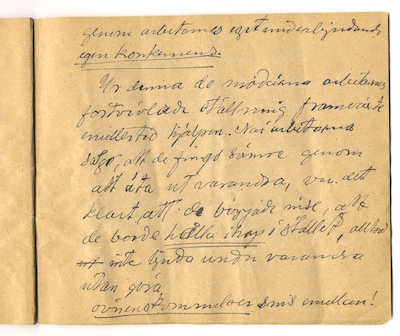 genom arbetarnes eget underbjudande
egen konkurrens.
Ur denna de moderna arbetarnes
förtviflade ställning framväxte
emellertid hjälpen. När arbetarna
sågo, att de fingo sämre genom
att äta ut varandra, var det
klart, att de började inse, att
de borde hålla ihop i stället, alltså
inte bjuda under varandra
utan göra
överenskommelser sins emellan!